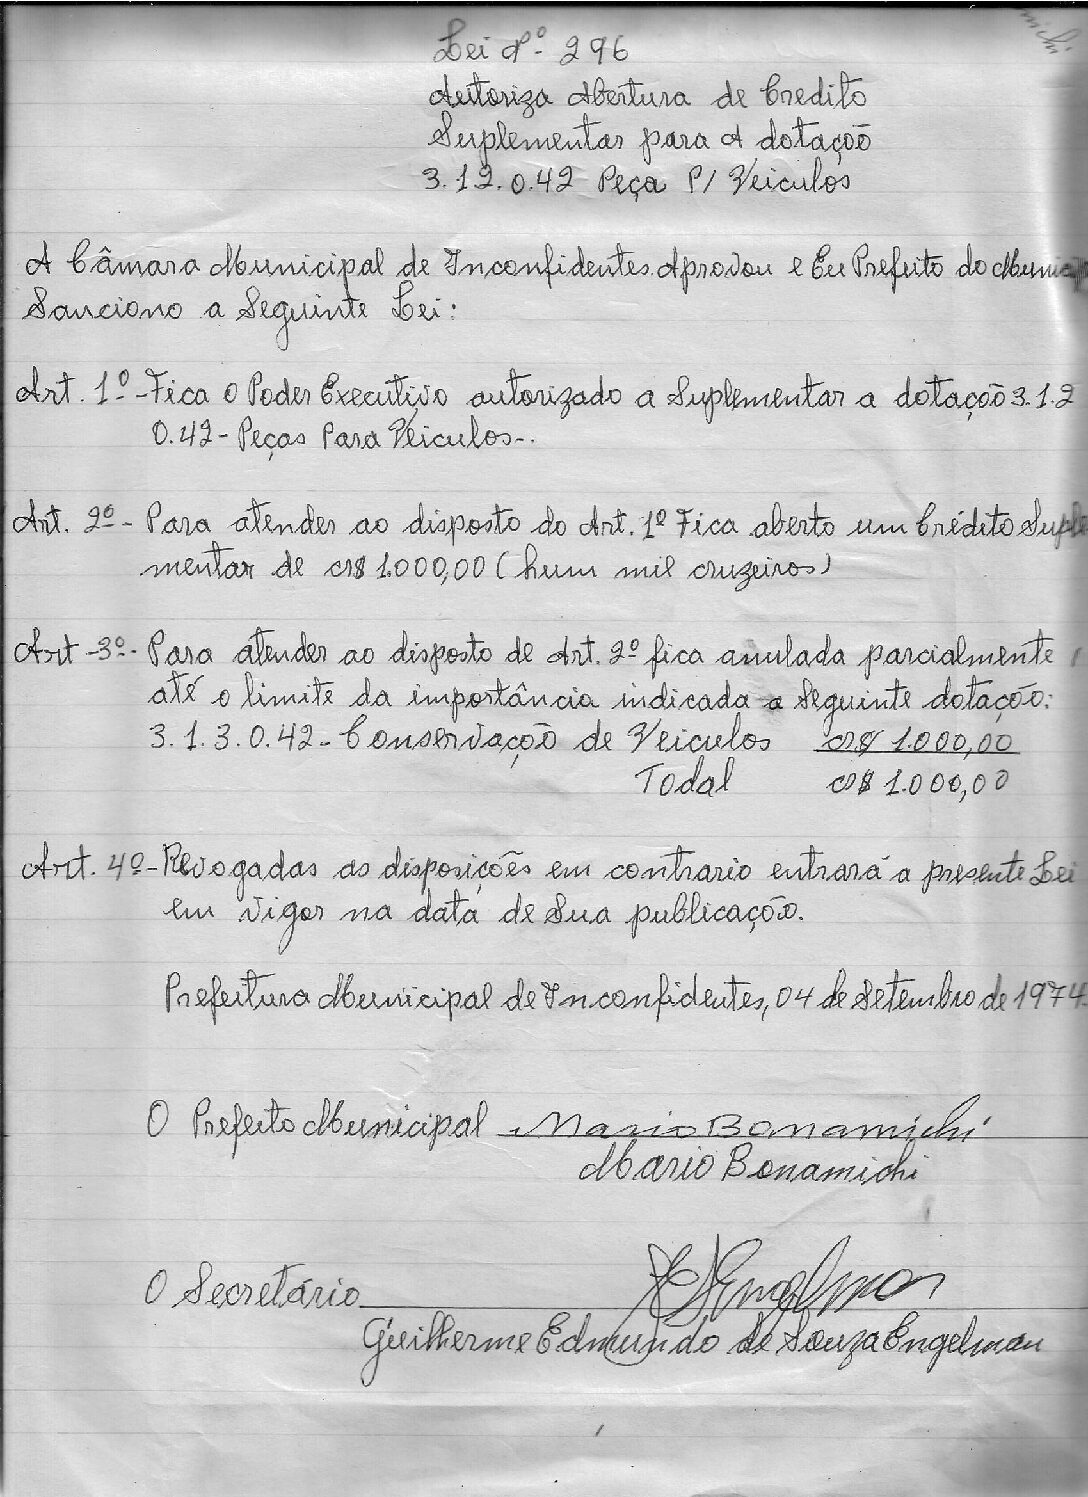 Lei Nº 296
Autoriza Abertura de Credito
Suplementar para A dotação
3.1.2.0.42 Peça P/ Veiculos
A Câmara Municipal de Inconfidentes Aprovou e Eu Prefeito do
Sanciono a Seguinte Lei:
Art. 1º - Fica o Poder Executivo autorizado a Suplementar a dotação 3.1.2
0.42 - Peças Para Veiculos-.
Art. 2º - Para atender ao disposto do Art. 1º Fica aberto um Crédito Suple
mentar de cr$ 1.000,00 (hum mil cruzeiros)
Art - 3º - Para atender ao disposto de Art. 2º fica anulada parcialmente,
até o limite da importância indicada a Seguinte dotação:
3.1.3.0.42 - Conservação de Veiculos cr$ 1.000,00
Todal cr$ 1.000,00
Art. 4º - Revogadas as disposições em contrario entrará a presente Lei
em vigor na data de Sua publicação.
Prefeitura Municipal de Inconfidentes, 04 de Setembro de 1974.
O Prefeito Municipal Mario Bonamichi
Mario Bonamichi
O Secretário Engelman
Guilherme Edmundo de Souza Engelman